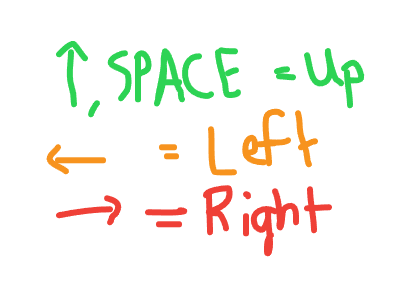 ↑, SPACE = Up
← = Left
→ = Right